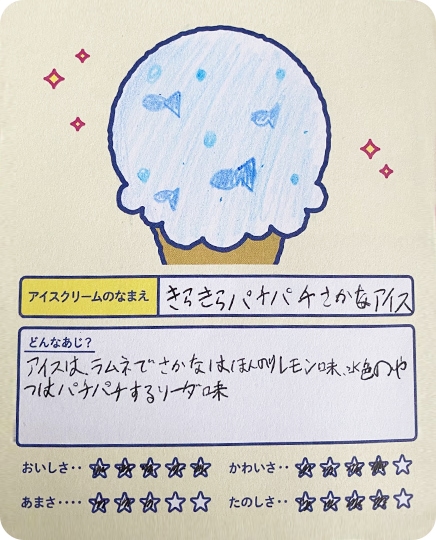 アイスクリームのなまえ
きらきらパチパチさかなアイス
どんなあじ？
アイスは、ラムネでさかなはほんのりレモン味、水色のや
つはパチパチするソーダ味
おいしさ‥ ★★★★★ かわいさ‥ ★★★★☆
あまさ‥‥ ★★★☆☆ たのしさ‥ ★★★★☆